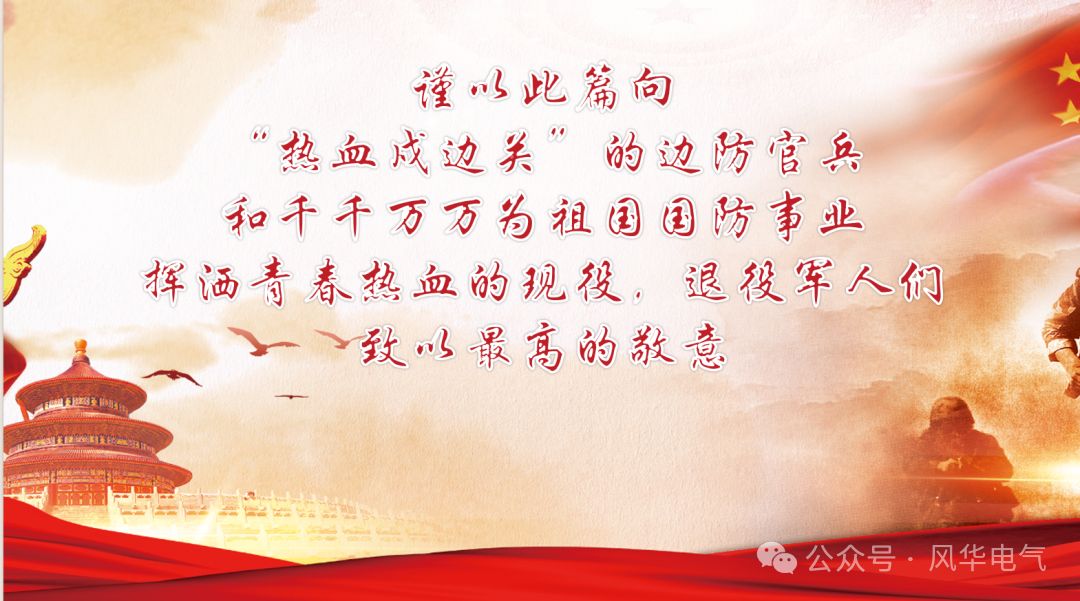 谨以此篇向
“热血戍边关”的边防官兵
和千千万万为祖国国防事业
挥洒青春热血的现役，退役军人们
致以最高的敬意
公众号·风华电气